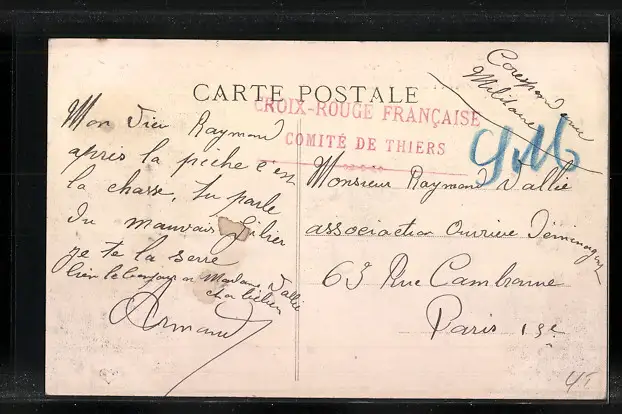 Corespondance
Militaire
CARTE POSTALE
CROIX-ROUGE FRANÇAISE
COMITÉ DE THIERS
Mon vieu Raymond
après la peche c'est
la chasse, tu parle
du mauvais Gibier
je te la serre
bien le bonjour a Madame Vallié
Armand
Monsieur Raymond Vallié
association Ouvrière
63 Rue Cambronne
Paris 15e